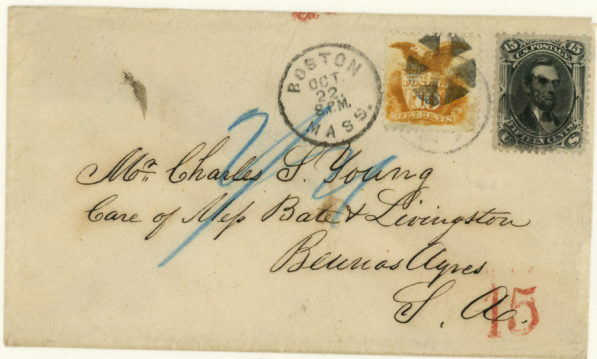 BOSTON
OCT.
22.
8 P.M.
MASS.
TEN CENTS
15 U.S. POSTAGE 15
FIFTEEN CENTS
U S
Mr. Charles S. Young
Care of Mess Bate & Livingston
Beunos Ayres
S. A.
15